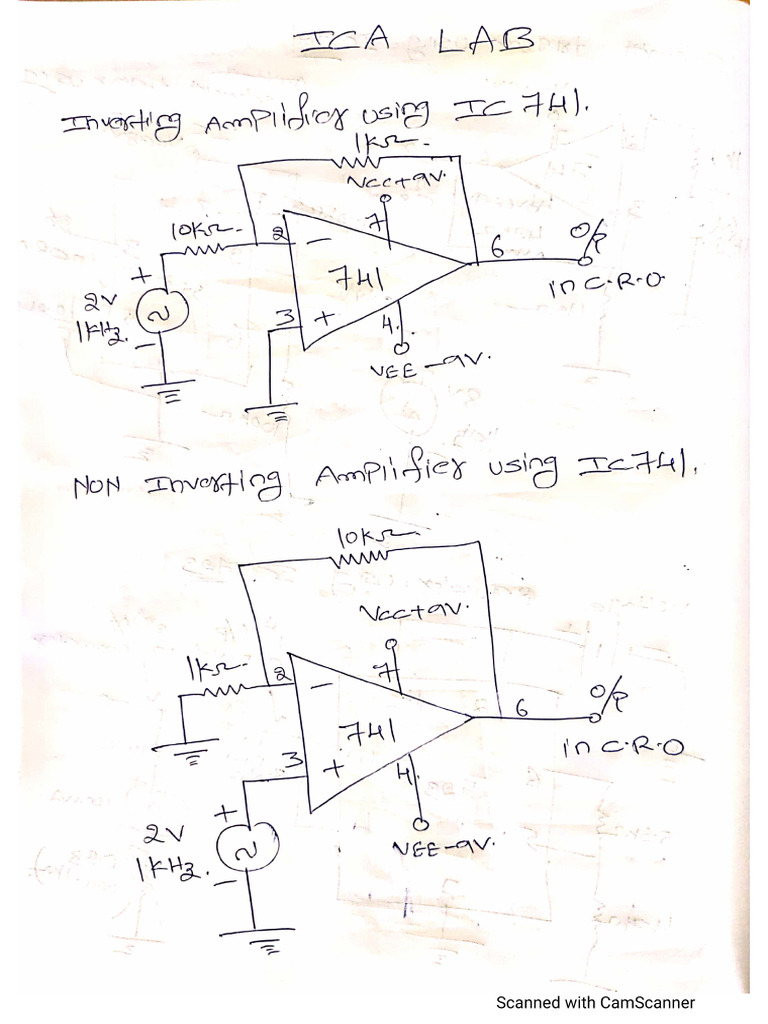 ICA LAB
Inverting Amplifier using IC 741.
1kΩ
VCC+9V.
10kΩ
2
7
6
O/P
in C.R.O
741
+
2V
1KHz.
3
+
4.
VEE-9V.
NON Inverting Amplifier using IC741.
10kΩ
VCC+9V.
1kΩ
2
7
6
O/P
in C.R.O
741
3
+
4.
+
2V
1KHz.
VEE-9V.
Scanned with CamScanner